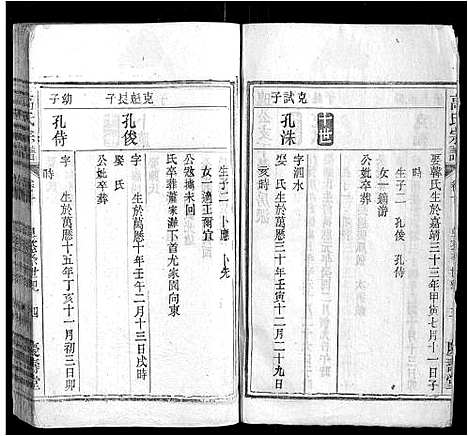 娶韓氏生於嘉靖三十三年甲寅七月十一日子
時
生子二 孔俊 孔侍
女一適游
十世
克試子
孔洙
字泗水
生於萬曆三十年壬寅十二月十九日
亥時
娶 氏
生子二 卜應 卜先
女一適王爾宜
公
氏卒葬董家灘下首尤家園向東
克魁長子
孔俊
字 生於萬曆十年壬午二月十三日戌時
娶 氏
公妣卒葬
幼子
孔侍
字 生於萬曆十五年丁亥十一月初三日卯
時
高氏宗譜
四
慶壽堂